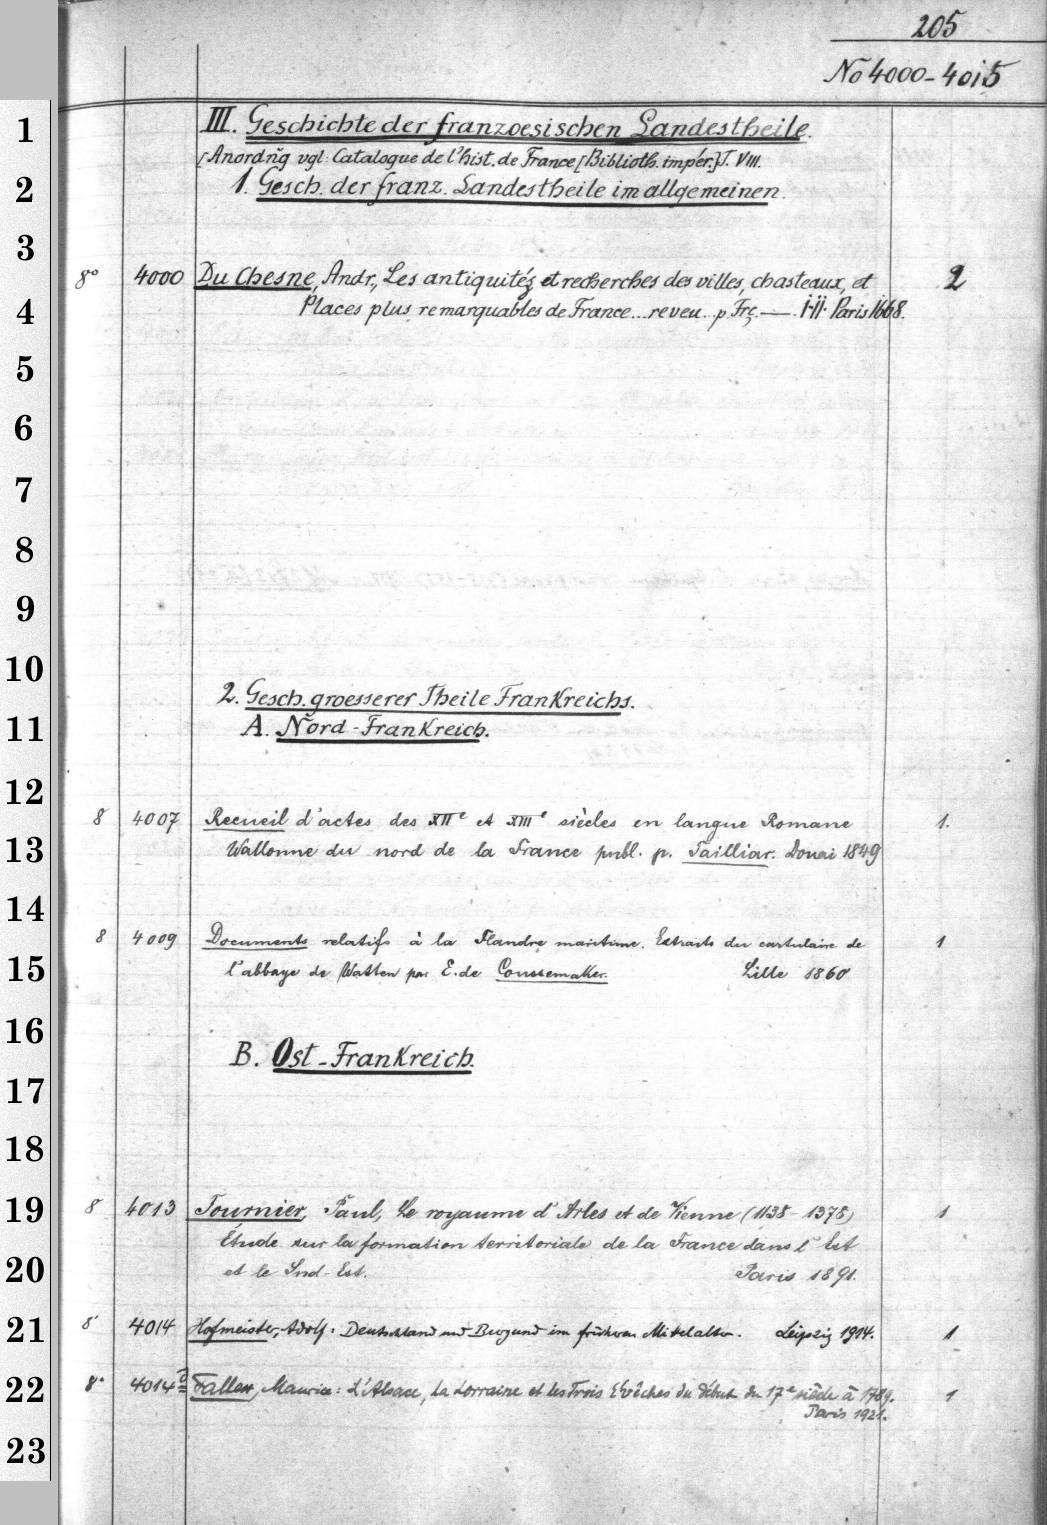 205
No 4000-4015
1
III. Geschichte der franzoesischen Landestheile.
[Anordn̄g vgl: Catalogue de l'hist. de France [Biblioth. impér.] T. VIII.
2
1. Gesch. der franz. Landestheile im allgemeinen.
3
8° 4000 Du Chesne, Andr., Les antiquitéz et recherches des villes, chasteaux, et 2
4
Places plus remarquables de France... reveu. p. Frç. —. I-II. Paris 1668.
5
6
7
8
9
10
2. Gesch. groesserer Theile Frankreichs.
11
A. Nord-Frankreich.
12
8 4007 Recueil d'actes des XIIe et XIIIe siècles en langue Romane 1.
13
Wallonne du nord de la France publ. p. Tailliar. Douai 1849
14
8 4009 Documents relatifs à la Flandre maritime. Extraits du cartulaire de 1
15
l'abbaye de Watten par E. de Coussemaker. Lille 1860
16
B. Ost-Frankreich.
17
18
19
8 4013 Fournier, Paul, Le royaume d'Arles et de Vienne (1138-1378) 1
Étude sur la formation territoriale de la France dans l'Est
20
et le Sud-Est. Paris 1891.
21
8° 4014 Hofmeister, Adolf: Deutschland und Burgund im früheren Mittelalter. Leipzig 1914. 1
22
8° 4014 Maurice: L'Alsace, la Lorraine et les Trois Évêches du début du 17e siècle à 1789. 1
Paris 1921.
23